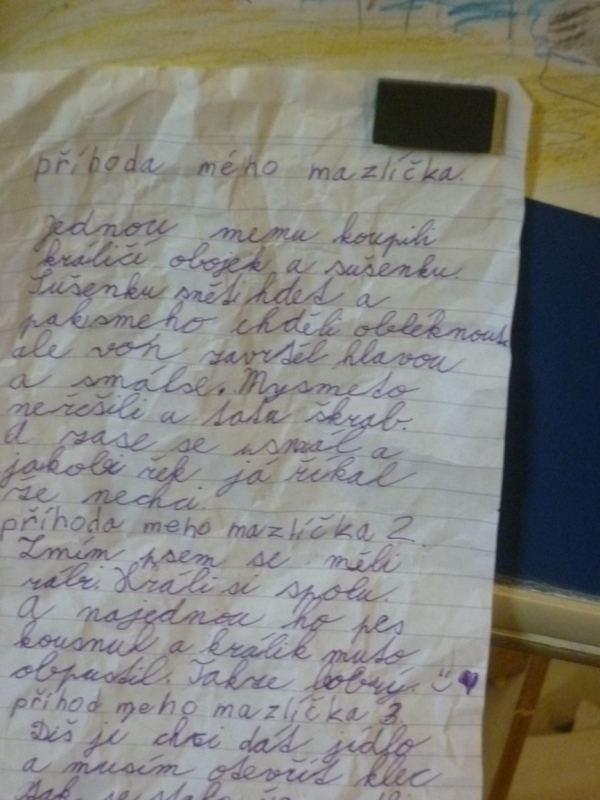 příhoda mého mazlíčka.
jednou memu koupili
králičí obojek a sušenku.
Sušenku sněti hdet a
paksmeho chděli obléknout
ale von zavrtěl hlavou
a smálse. Mysmeto
neřešili a tata škrab.
A zase se usmál a
jakobi řek já říkal
že nechci.
příhoda meho mazlíčka 2.
Zmím psem se měli
rádi. Hráli si spolu.
A najednou ho pes
kousnul a králik muto
obpustil. Takže dobrý.
příhod meho mazlíčka 3.
Diš je chci dát jídlo
a musím otevřít klec